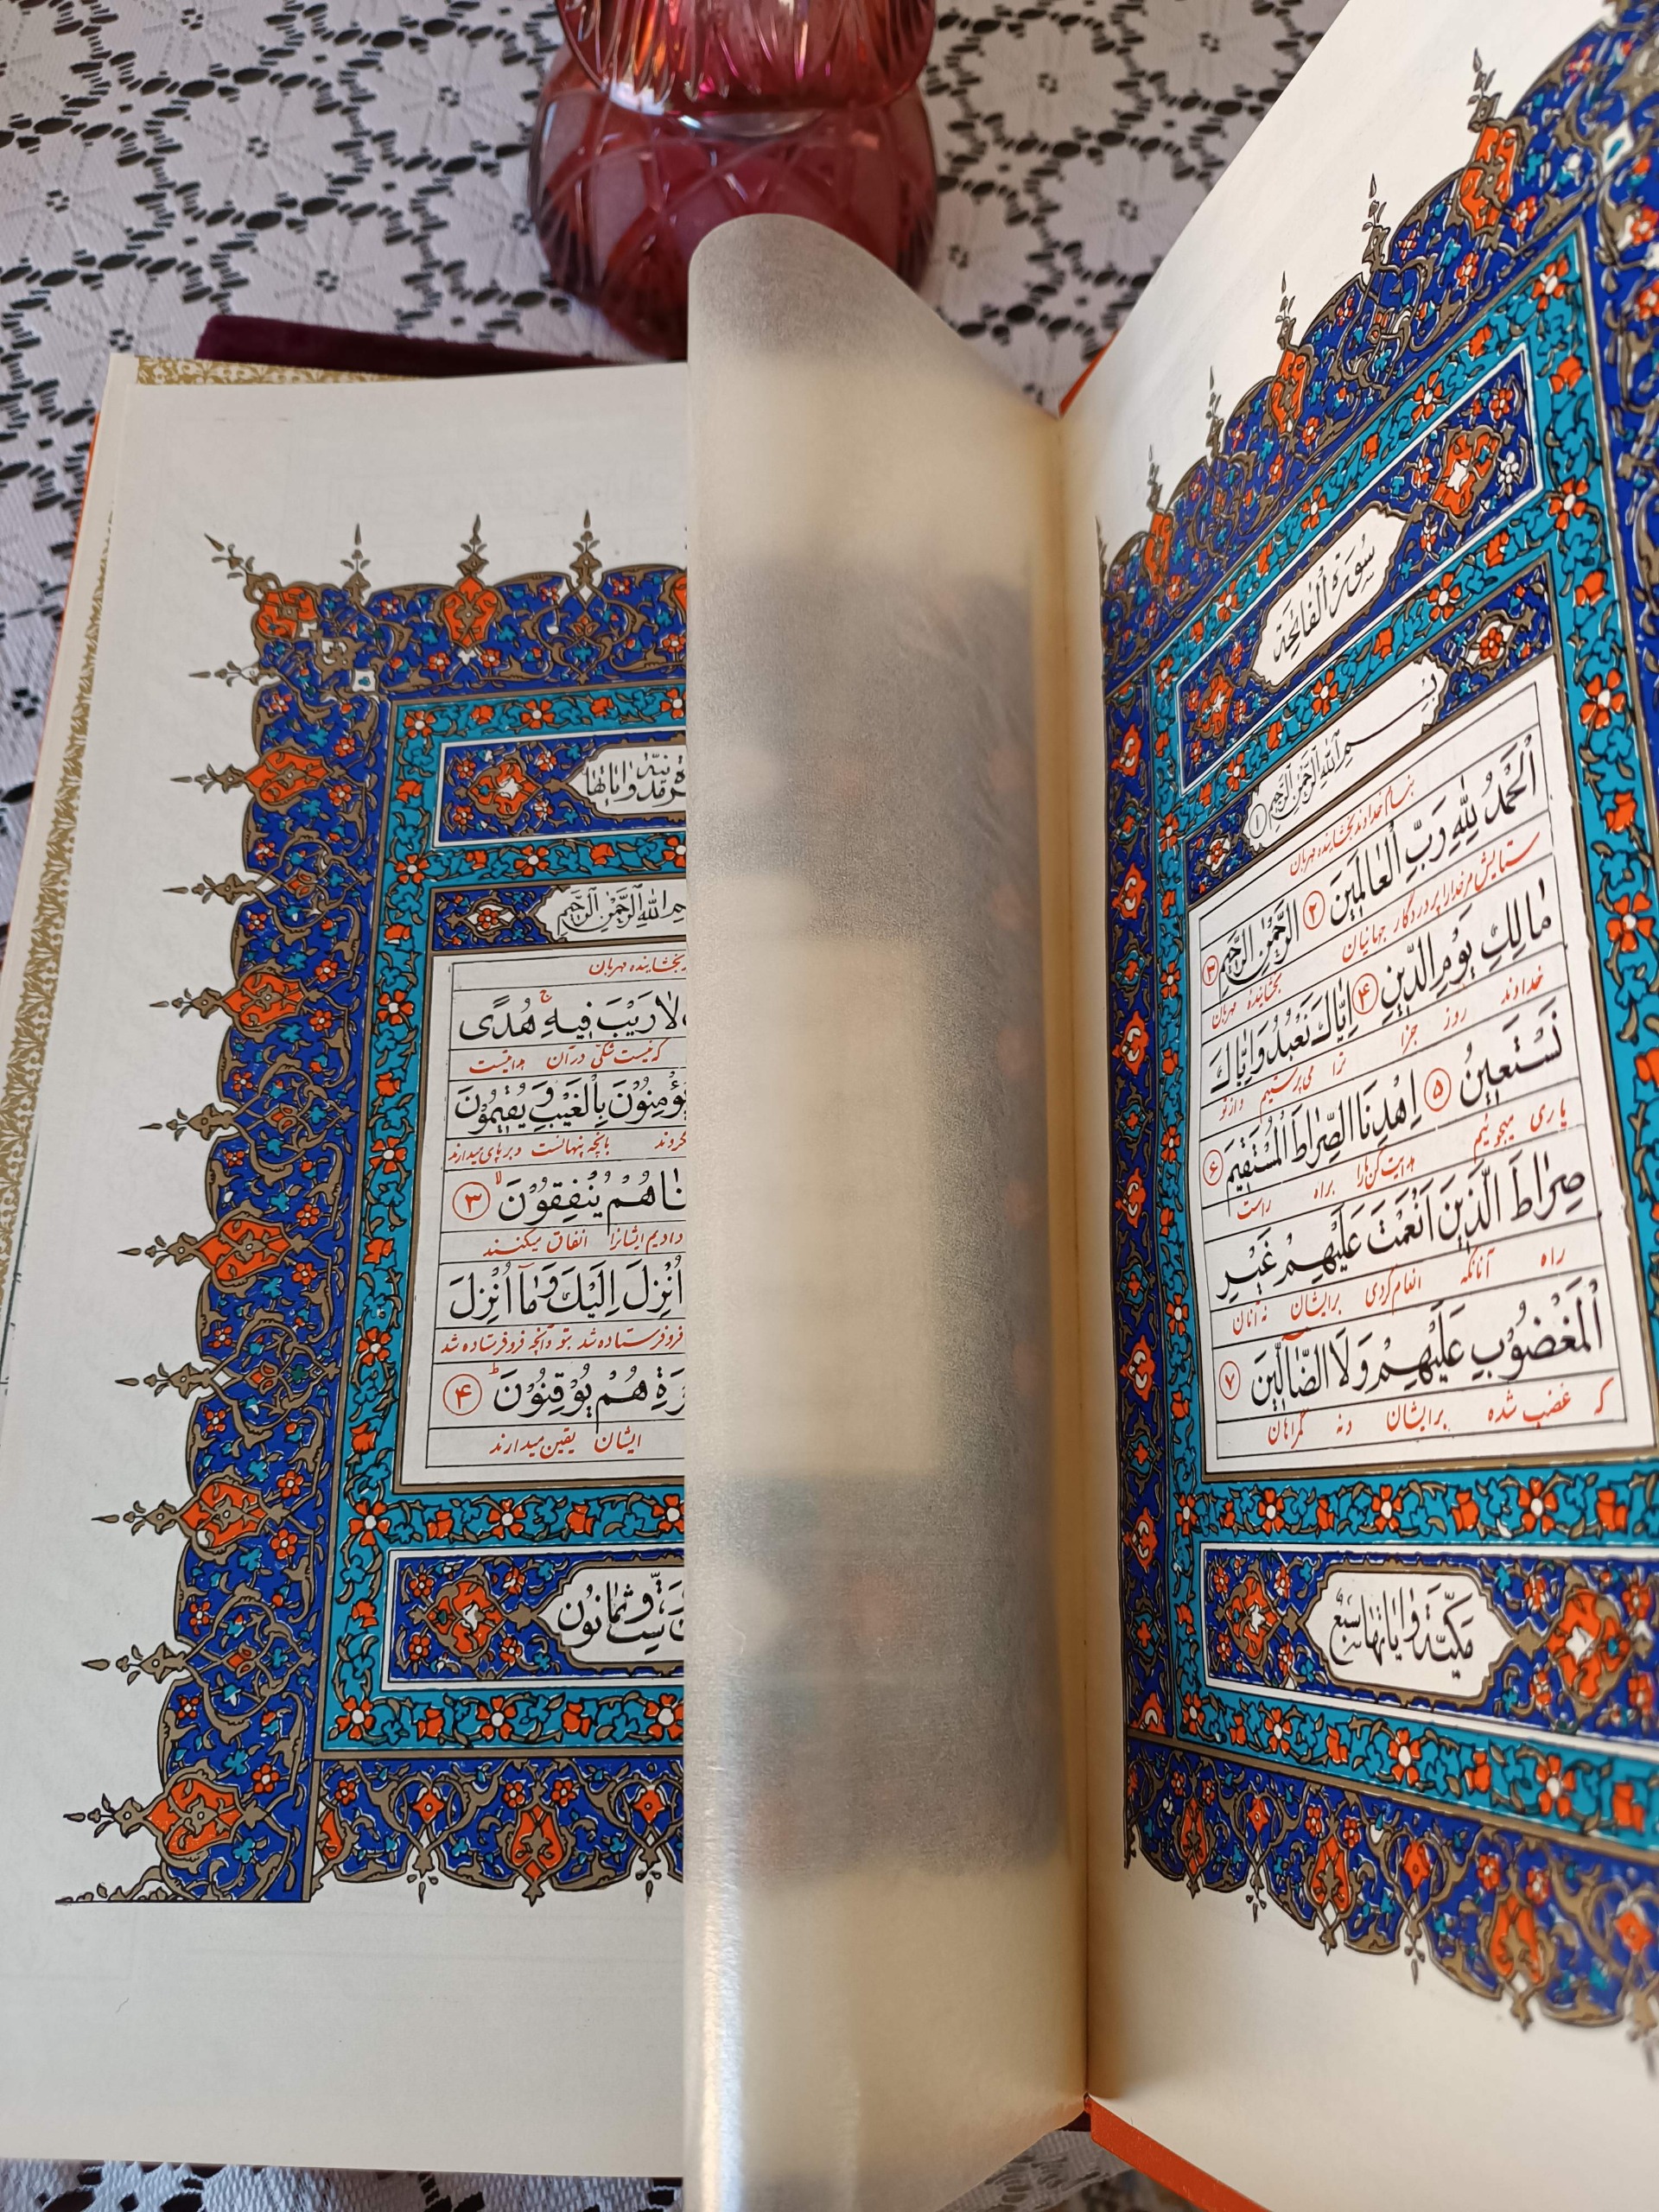 سُورَةُ الْفَاتِحَةِ
بِسْمِ اللَّهِ الرَّحْمٰنِ الرَّحِيمِ ۱
بنام خداوند بخشاینده مهربان
اَلْحَمْدُ لِلّٰهِ رَبِّ الْعَالَمِينَ ۲ الرَّحْمٰنِ الرَّحِيمِ ۳
ستایش مر خدا را پروردگار جهانیان بخشاینده مهربان
مَالِكِ يَوْمِ الدِّينِ ۴ اِيَّاكَ نَعْبُدُ وَاِيَّاكَ
خداوند روز جزا ترا می‌پرستیم و از تو
نَسْتَعِينُ ۵ اِهْدِنَا الصِّرَاطَ الْمُسْتَقِيمَ ۶
یاری میجوئیم هدایت کن ما را براه راست
صِرَاطَ الَّذِينَ اَنْعَمْتَ عَلَيْهِمْ غَيْرِ
راه آنانکه انعام کردی برایشان نه آنان
الْمَغْضُوبِ عَلَيْهِمْ وَلَا الضَّالِّينَ ۷
که غضب شده برایشان و نه گمراهان
مَكِّيَّةٌ وَاٰيَاتُهَا سَبْعٌ
مدنیة وایاتها
اللَّهِ الرَّحْمٰنِ الرَّحِيمِ
بخشاینده مهربان
لَا رَيْبَ فِيهِ هُدًى
که نیست شکی در آن هدایتست
يُؤْمِنُونَ بِالْغَيْبِ وَيُقِيمُونَ
بآنچه پنهانست و برپای میدارند
هُمْ يُنْفِقُونَ ۳
دادیم ایشانرا انفاق میکنند
اُنْزِلَ اِلَيْكَ وَمَا اُنْزِلَ
فرو فرستاده شد بتو و آنچه فرو فرستاده شد
هُمْ يُوقِنُونَ ۴
ایشان یقین میدارند
وثمانون